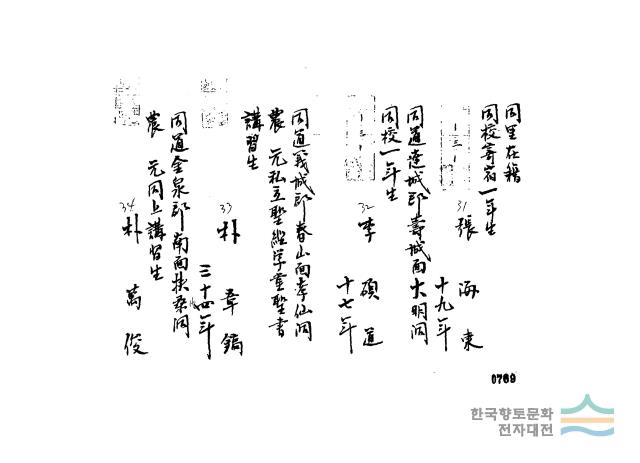 同里在籍
同校寄宿一年生
31 張海東
十九年
同道達城郡壽城面大明洞
同校一年生
32 李碩道
十七年
同道義城郡春山面孝仙洞
農 元私立聖經学堂聖書
講習生
33 朴章鎬
三十四年
同道金泉郡南面扶桑洞
農 元同上講習生
34 朴萬俊
0769
한국향토문화
전자대전